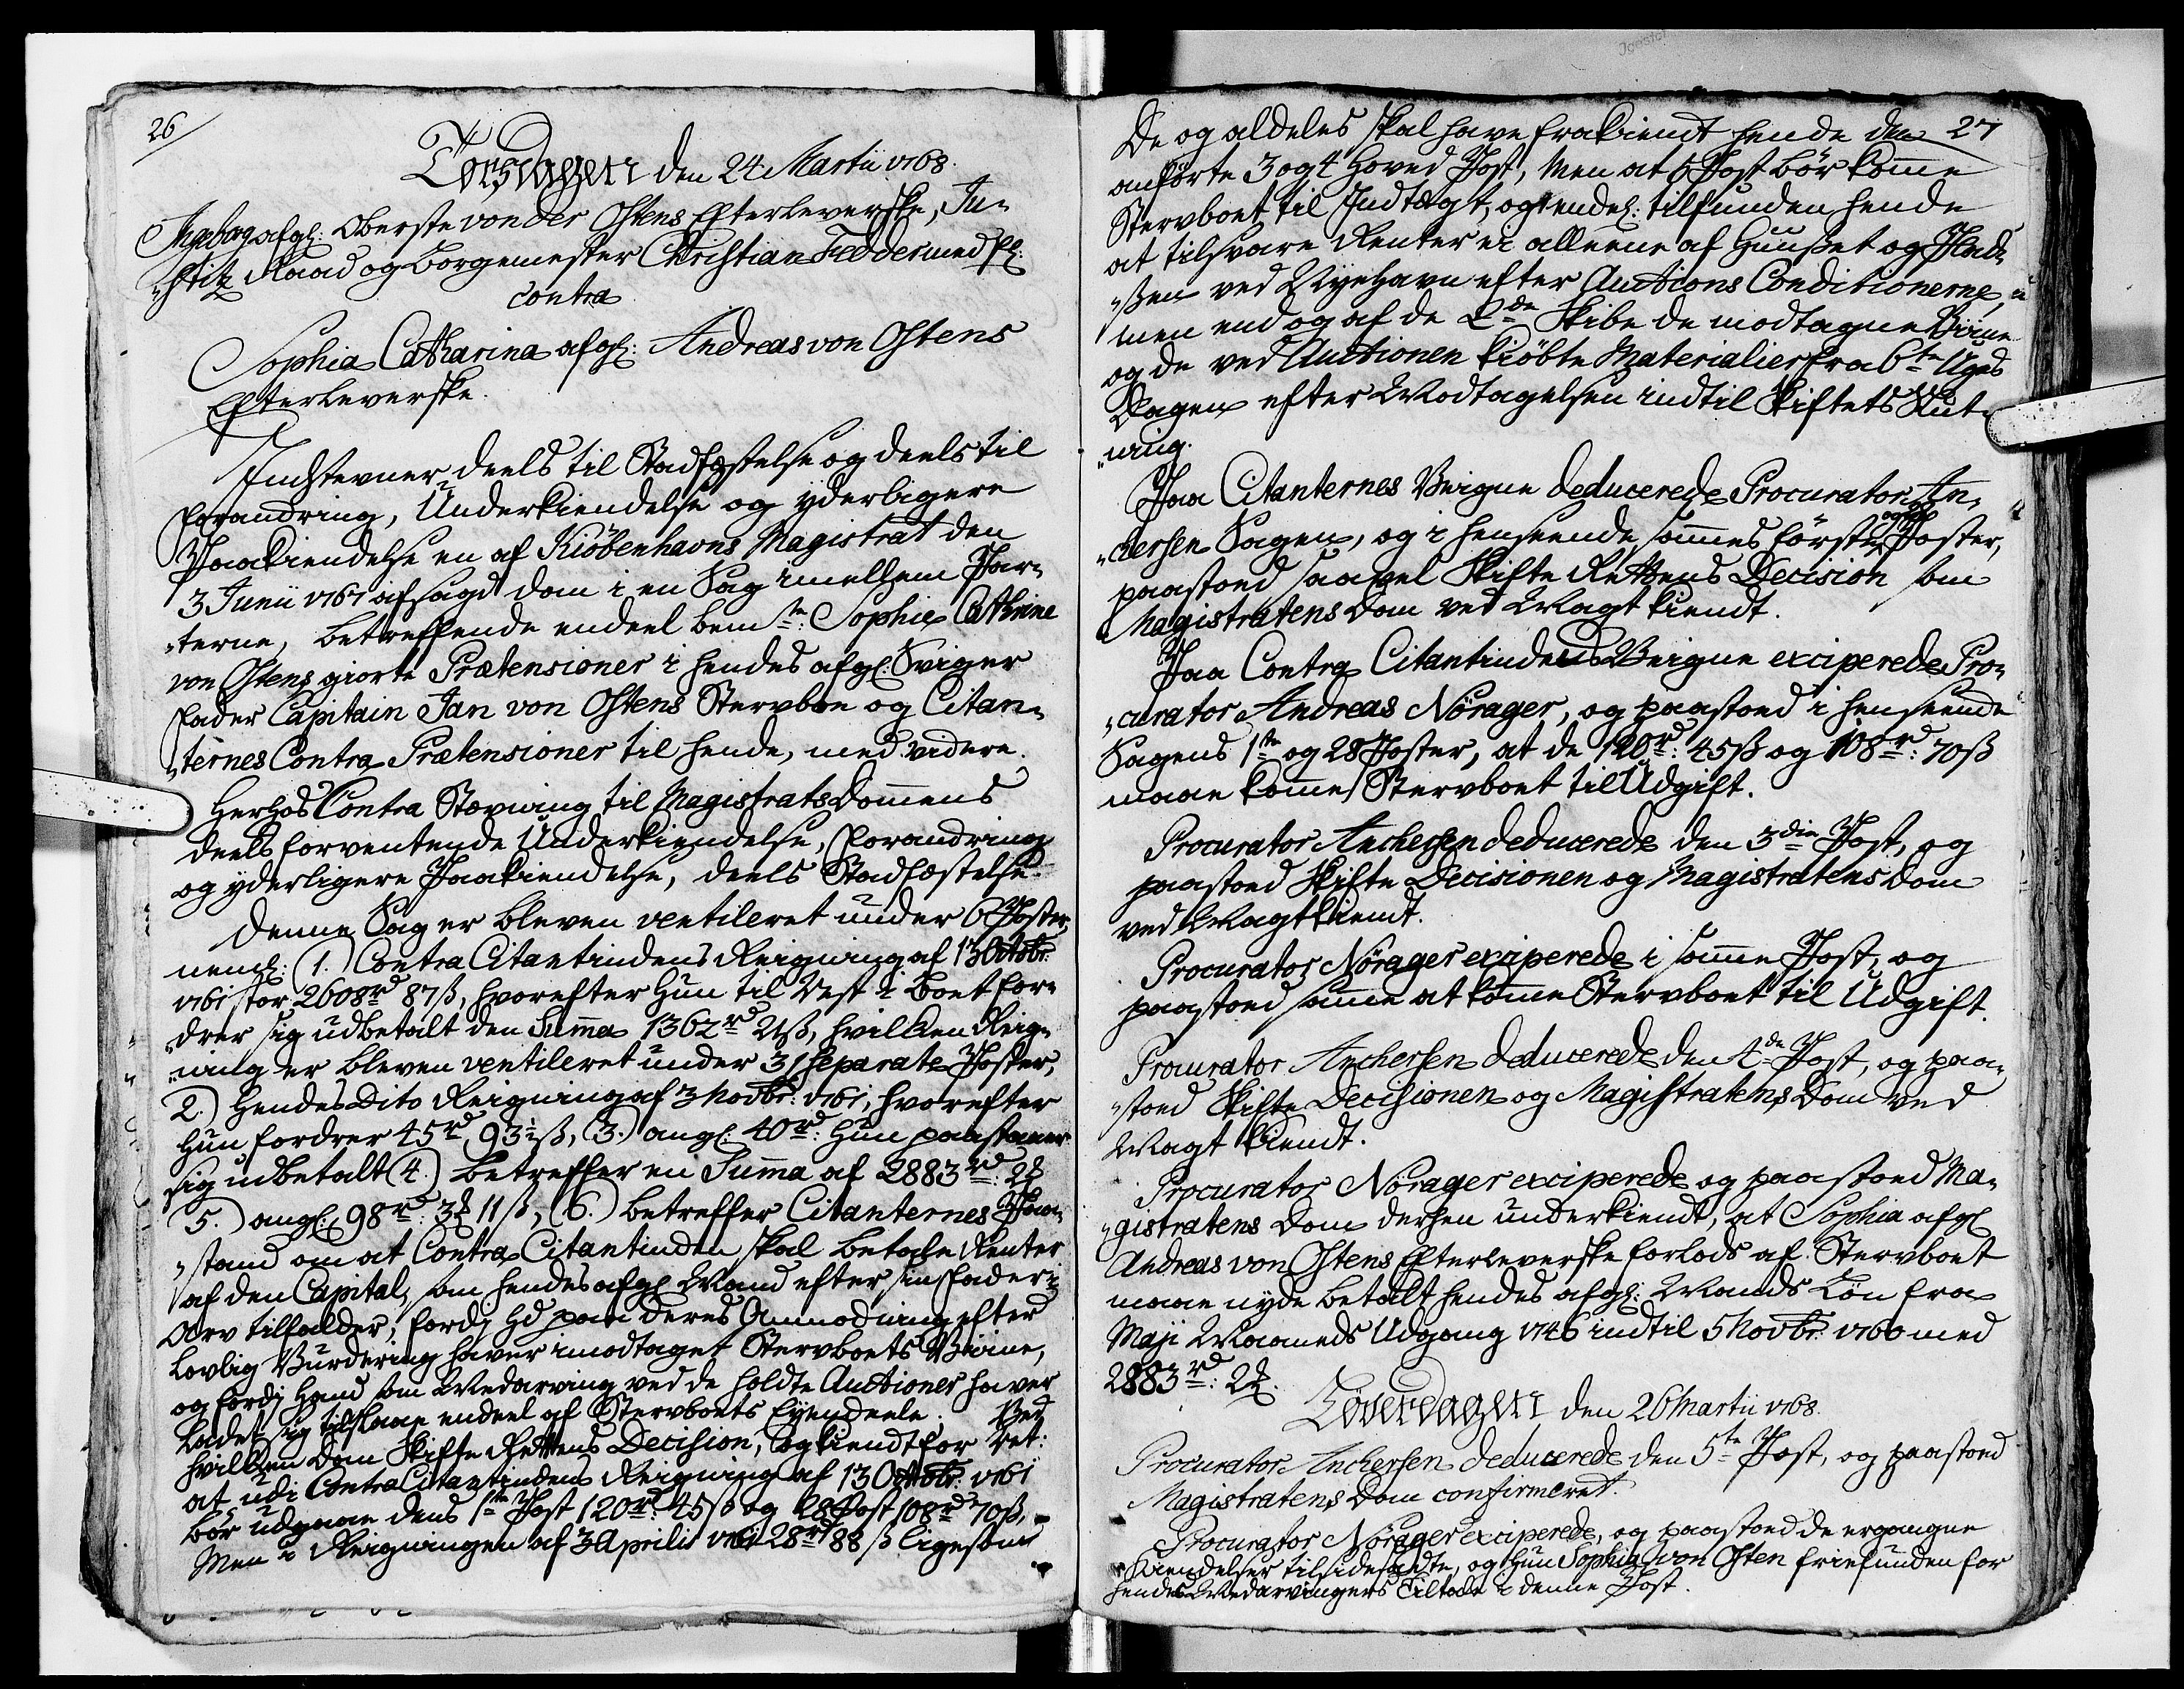 26
Torsdagen den 24 Martii 1768.
Ingeborg afgl: Oberste von der Ostens Efterleverske, Ju-
„stitz Raad og Borgemester Christian Fedder med fl:
contra
Sophia Catharina afgl: Andreas von Ostens
Efterleverske.
Indstevner deels til Stadfæstelse og deels til
Forandring, Underkiendelse og yderligere
Paakiendelse en af Kiøbenhavns Magistrat den
3 Junii 1767 afsagd Dom i en Sag imellem Par-
„terne, betreffende endeel bemte: Sophie Cathrine
von Ostens giorte Prætensioner i hendes afgl: Sviger
Fader Capitain Jan von Ostens Stervboe og Citan-
„ternes Contra Prætensioner til hende, med videre.
Herhos Contra Stævning til Magistrats Dommens
deels forventende Underkiendelse, Forandring
og yderligere Paakiendelse, deels Stadfæstelse.
Denne Sag er bleven ventileret under 6 Poster,
neml: (1.) Contra Citantindens Reigning af 13 Octobr:
1761 stor 2608rd 87ß, hvorefter Hun til Rest i Boet for-
„drer sig udbetalt den Summa 1362rd 2ß, hvilken Reig-
„ning er bleven ventileret under 31 separate Poster,
2.) Hendes Dito Reigning af 3 Novbr: 1761, hvorefter
Hun fordrer 45rd, 93½ß, (3.) angl: 40rd: Hun paastaaer
sig udbetalt (4.) betreffer en Summa af 2883rd: 2₰
5.) angl: 98rd: 3₰ 11ß, (6.) betreffer Citanternes Paa-
„stand om at Contra Citantinden skal betale Renter
af den Capital, som hendes afgl: Mand efter sin Fader i
Arv tilfalder, fordi Hd paa deres Anmodning efter
lovlig Vurdering haver imodtaget Stervboets Viine,
og fordi Hand som Medarving ved de holdte Auctioner haver
ladet sig tilslaae endeel af Stervboets Eyendeele. Ved
hvilken Dom Skifte Rettens Decision, er kiendt for Ret:
at udi Contra Citantindens Reigning af 13 Octobr: 1761
bør udgaae dens 1ste Post 120rd: 45ß og 28 Post 108rd 70ß,
Men i Reigningen af 3 Aprilis 1761 28rd 88 ß ligesom
27
De og aldeles skal have frakiendt hende den
anførte 3 og 4 Hoved Post, Men at 5 Post bør komme
Stervboet til Indtægt, og endel: tilfunden hende
at tilsvare Renter ei alleene af Huuset og Plad-
„sen ved Nyehavn efter Auctions Conditionerne,
men end og af de 2de Skibe de modtagne Viine
og de ved Auctionen kiøbte Materialier fra 6te Uges
Dagen efter Modtagelsen indtil Skiftets Slut-
„ning.
Paa Citanternes Veigne deducerede Procurator An-
„chersen Sagen, og i henseende sammes første Poster,
paastoed saavel Skifte Rettens Decision som
Magistratens Dom ved Magt kiendt.
Paa Contra Citantindens Veigne exciperede Pro-
„curator Andreas Nørager, og paastoed i henseende
Sagens 1ste og 28 Poster, at de 120rd: 45ß og 108rd: 70ß
maae komme Stervboet til Udgift.
Procurator Anchersen deducerede den 3die Post, og
paastoed Skifte Decisionen og Magistratens Dom
ved Magt kiendt.
Procurator Nørager exciperede i samme Post, og
paastoed samme at komme Stervboet til Udgift.
Procurator Anchersen deducerede den 4de Post, og paa-
„stoed Skifte Decisionen og Magistratens Dom ved
Magt kiendt.
Procurator Nørager exciperede og paastoed Ma-
„gistratens Dom derhen underkiendt, at Sophia afgl
Andreas von Ostens Efterleverske forlods af Stervboet
maae nyde betalt hendes afgl: Mands Løn fra
Maji Maaneds Udgang 1746 indtil 5 Novbr: 1760 med
2883rd: 2₰.
Løverdagen den 26 Martii 1768.
Procurator Anchersen deducerede den 5te Post, og paastoed
Magistratens Dom confirmeret.
Procurator Nørager exciperede, og paastoed de ergangne
Kiendelser tilsidesadte, og Hun Sophia von Osten friefunden for
hendes Medarvingers Tiltale i denne Post.